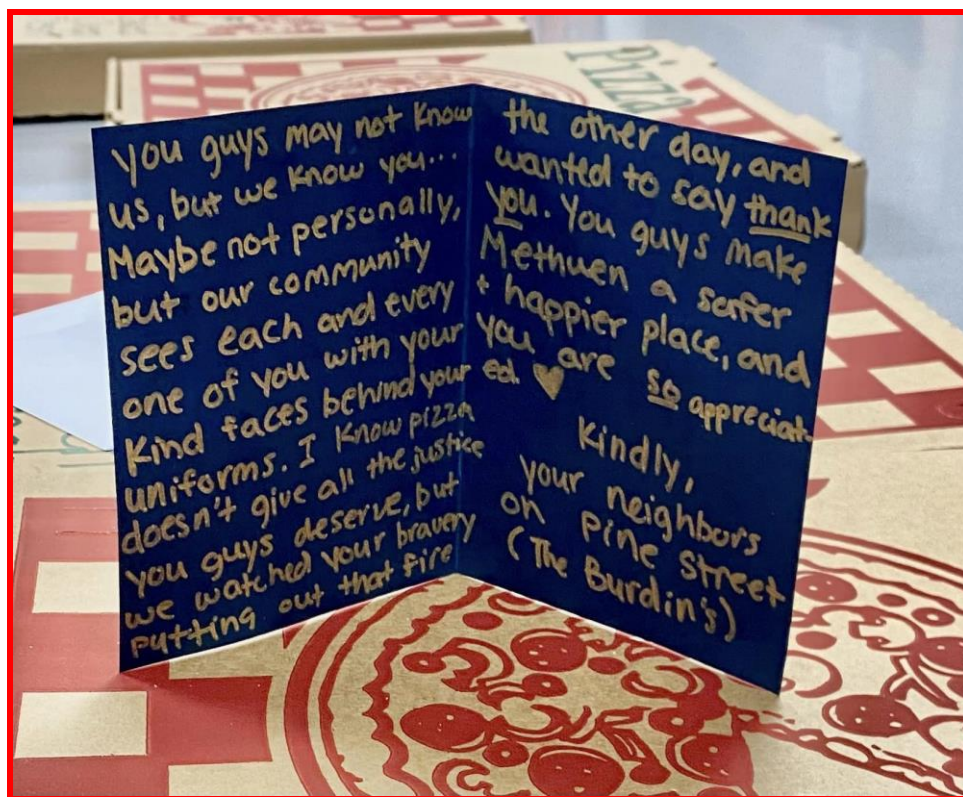 Pizza
you guys may not know
us, but we know you...
Maybe not personally,
but our community
sees each and every
one of you with your
Kind faces behind your
uniforms. I know pizza
doesn't give all the justice
you guys deserve, but
we watched your bravery
putting out that fire
the other day, and
wanted to say thank
you. You guys make
Methuen a safer
+ happier place, and
you are so appreciat-
ed. ♥
Kindly,
your neighbors
on pine street
(The Burdin's)